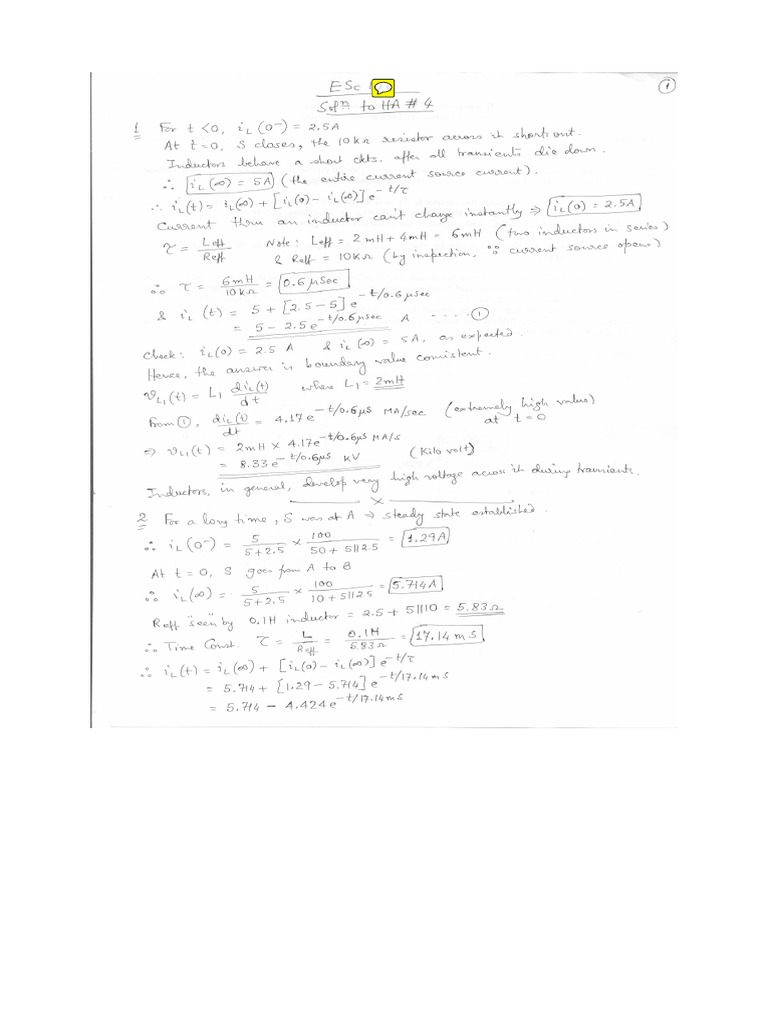 ESc
Solⁿ to HA # 4
①
1 For t < 0, i_L(0⁻) = 2.5A
At t=0, S closes, the 10kΩ resistor across it shorts out.
Inductors behave a short ckts. after all transients die down.
∴ i_L(∞) = 5A (the entire current source current).
∴ i_L(t) = i_L(∞) + [i_L(0) − i_L(∞)] e^−t/τ
Current thru an inductor can't change instantly ⇒ i_L(0) = 2.5A
τ = Leff/Reff Note: Leff = 2mH + 4mH = 6mH (two inductors in series)
& Reff = 10kΩ (by inspection, ∵ current source opens)
∴ τ = 6mH/10kΩ = 0.6 μSec
& i_L(t) = 5 + [2.5 − 5] e^−t/0.6μsec
= 5 − 2.5e^−t/0.6μsec A ---- ①
Check: i_L(0) = 2.5 A & i_L(∞) = 5A, as expected.
Hence, the answer is boundary value consistent.
v_L1(t) = L₁ di_L(t)/dt where L₁ = 2mH
From ①, di_L(t)/dt = 4.17e^−t/0.6μs MA/sec (extremely high value)
at t=0
⇒ v_L1(t) = 2mH × 4.17e^−t/0.6μs MA/s
= 8.33e^−t/0.6μs kV (Kilo volt)
Inductors, in general, develop very high voltage across it during transients.
×
2 For a long time, S was at A ⇒ steady state established.
∴ i_L(0⁻) = 5/5+2.5 × 100/50+5||2.5 = 1.29A
At t=0, S goes from A to B
∴ i_L(∞) = 5/5+2.5 × 100/10+5||2.5 = 5.714A
Reff "seen" by 0.1H inductor = 2.5 + 5||10 = 5.83Ω
∴ Time Const. τ = L/Reff = 0.1H/5.83Ω = 17.14 mS
∴ i_L(t) = i_L(∞) + [i_L(0) − i_L(∞)] e^−t/τ
= 5.714 + [1.29 − 5.714] e^−t/17.14ms
= 5.714 − 4.424e^−t/17.14ms